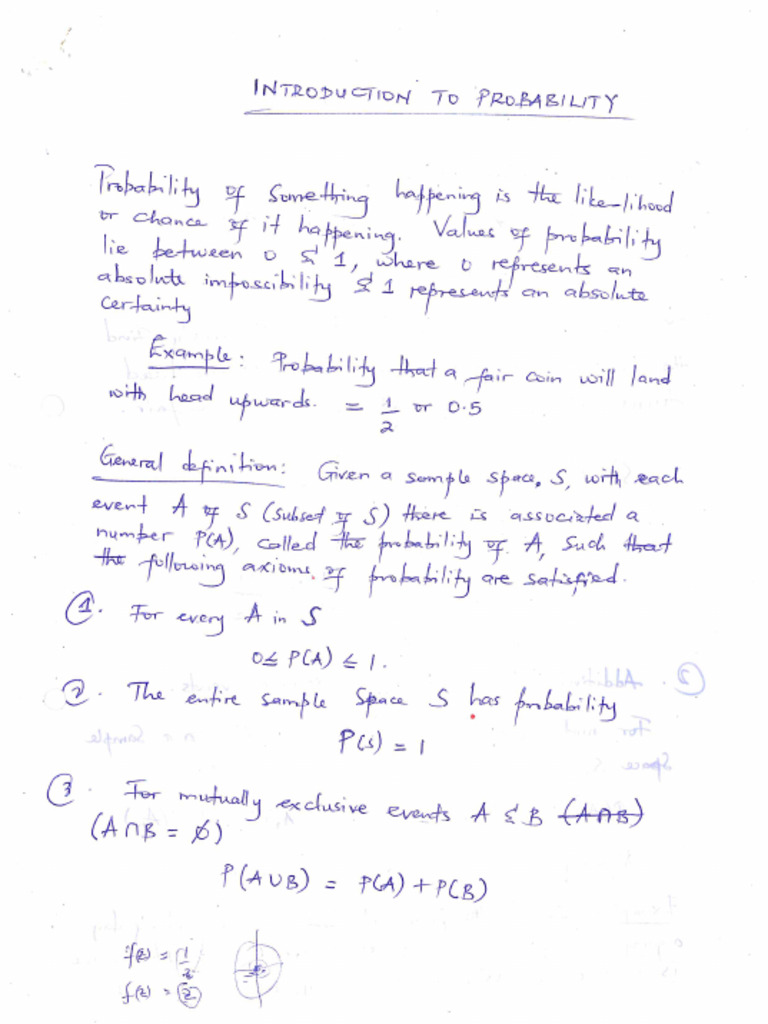 INTRODUCTION TO PROBABILITY
Probability of something happening is the like-lihood
or chance of it happening. Values of probability
lie between 0 & 1, where 0 represents an
absolute impossibility & 1 represents an absolute
certainty
Example: Probability that a fair coin will land
with head upwards. = 1/2 or 0.5
General definition: Given a sample space, S, with each
event A of S (subset of S) there is associated a
number P(A), called the probability of A, such that
the following axioms of probability are satisfied.
1. For every A in S
0 ≤ P(A) ≤ 1.
2. The entire sample space S has probability
P(S) = 1
3. For mutually exclusive events A & B (A∩B)
(A∩B = ∅)
P(A∪B) = P(A) + P(B)
f(z) = 1/z
f(z) = z